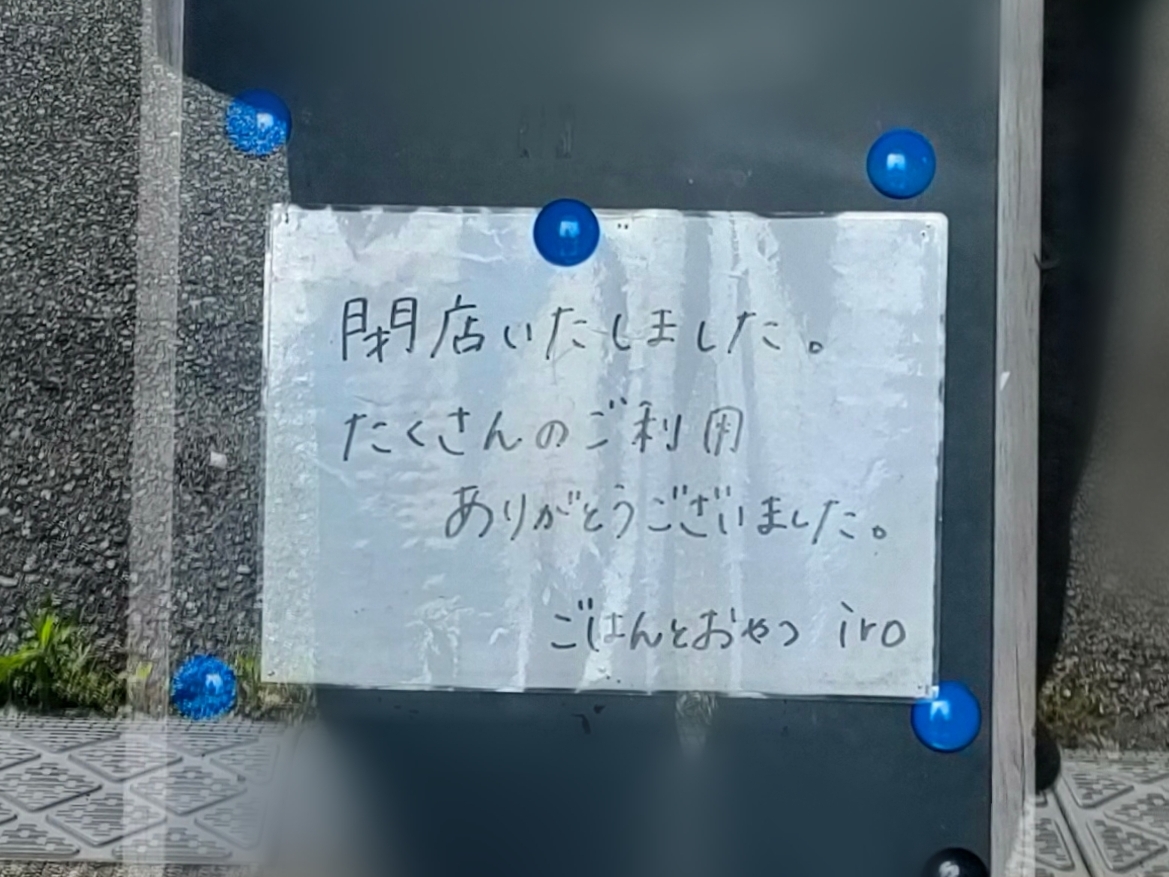 閉店いたしました。
たくさんのご利用
ありがとうございました。
ごはんとおやつ iro